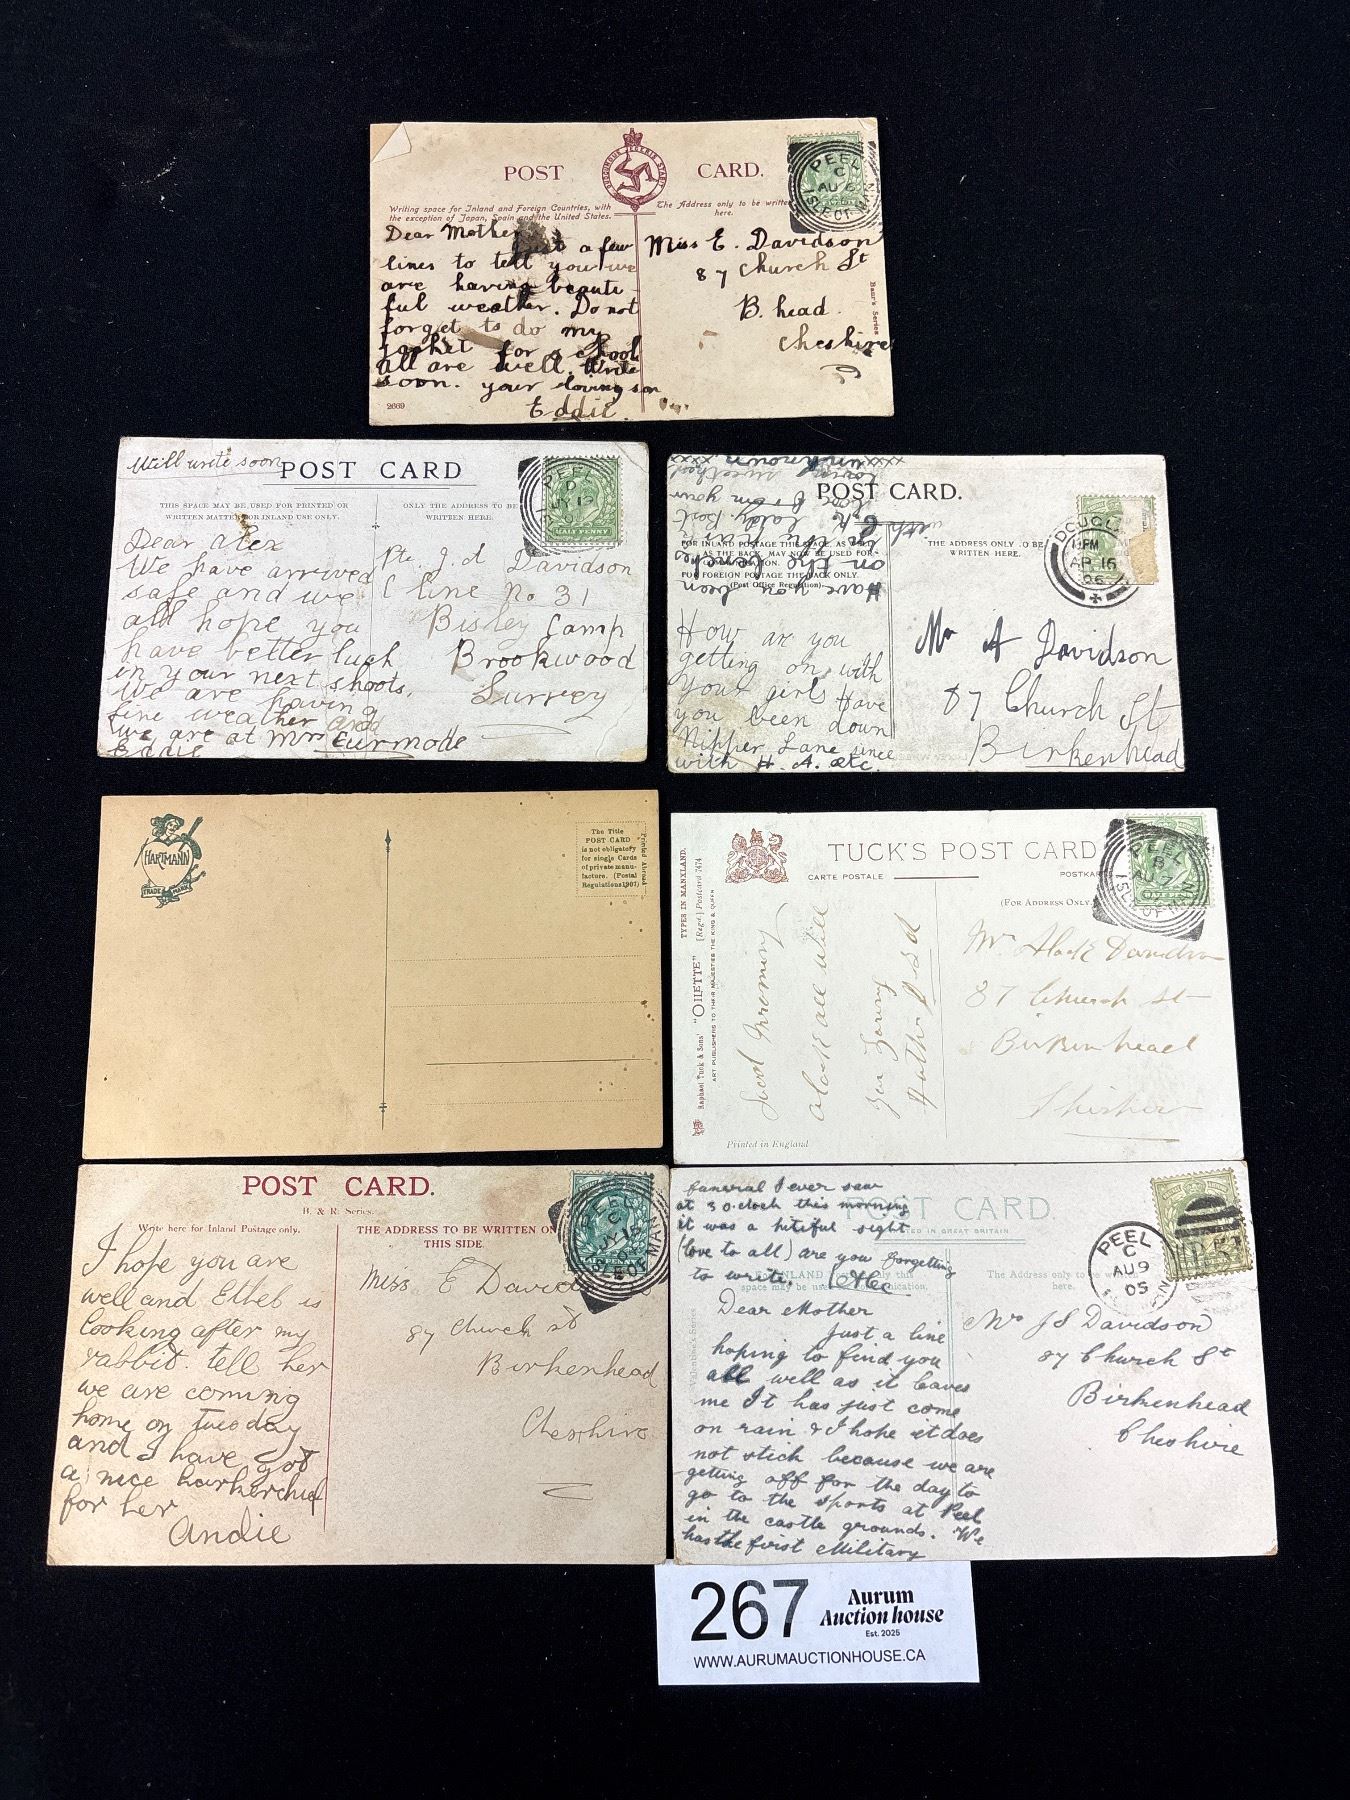 POST CARD.
QUOCUNQUE JECERIS STABIT
Writing space for Inland and Foreign Countries, with
the exception of Japan, Spain and the United States.
The Address only to be written
here.
PEEL
C
AU 6
ISLE OF MAN
Dear Mother
Just a few
lines to tell you we
are having beauti-
ful weather. Do not
forget to do my
jacket for school
All are well. Write
soon. your loving son
Eddie.
2669
Miss E. Davidson
87 Church St
B. head.
Cheshire
Baur's Series
Will write soon
POST CARD
THIS SPACE MAY BE USED FOR PRINTED OR
WRITTEN MATTER FOR INLAND USE ONLY.
ONLY THE ADDRESS TO BE
WRITTEN HERE.
HALF PENNY
Dear Alex
We have arrived
safe and we
all hope you
have better luck
in your next shoots.
We are having
fine weather and
we are at Mrs
Eddie
Pte. J. A Davidson
C line No 31
Bisley Camp
Brookwood
Surrey
POST CARD.
FOR INLAND POSTAGE THIS SPACE, AS WELL
AS THE BACK, MAY NOW BE USED FOR
COMMUNICATION.
FOR FOREIGN POSTAGE THE BACK ONLY.
(Post Office Regulation).
THE ADDRESS ONLY TO BE
WRITTEN HERE.
DOUGLAS
AP 16
06
Have you been
on the benches
How are you
getting on with
your girls Have
you been down
Nipper Lane since
with H. A. etc.
Mr A Davidson
87 Church St
Birkenhead
HARTMANN
TRADE MARK
The Title
POST CARD
is not obligatory
for single Cards
of private manu-
facture. (Postal
Regulations 1907)
Printed Abroad
TUCK'S POST CARD
CARTE POSTALE
POSTKARTE
(FOR ADDRESS ONLY.)
Raphael Tuck & Sons' "OILETTE" [Regd.] Postcard 7474
TYPES IN MANXLAND.
ART PUBLISHERS TO THEIR MAJESTIES THE KING & QUEEN
PEEL
B
AU 7
ISLE OF MAN
Good Morning
Your Loving
Mr Davidson
87 Church St
Birkenhead
Printed in England
POST CARD.
H. & R. Series.
Write here for Inland Postage only.
THE ADDRESS TO BE WRITTEN ON
THIS SIDE.
PEEL
C
JY 15
04
ISLE OF MAN
I hope you are
well and Ethel is
looking after my
rabbit. tell her
we are coming
home on Tuesday
and I have got
a nice hankerchief
for her
Andie
Miss E Davidson
87 Church St
Birkenhead
Cheshire
funeral I ever saw
at 3 o.clock this morning
it was a pitiful sight
(love to all) are you forgetting
to write. Alec
POST CARD
PRINTED IN GREAT BRITAIN
The Address only to be written
here.
PEEL
C
AU 9
05
Dear Mother
Just a line
hoping to find you
all well as it leaves
me It has just come
on rain & I hope it does
not stick because we are
getting off for the day to
go to the sports at Peel
in the castle grounds. We
has the first Military
Mrs J S Davidson
87 Church St
Birkenhead
Cheshire
267
Aurum
Auction house
Est. 2025
WWW.AURUMAUCTIONHOUSE.CA